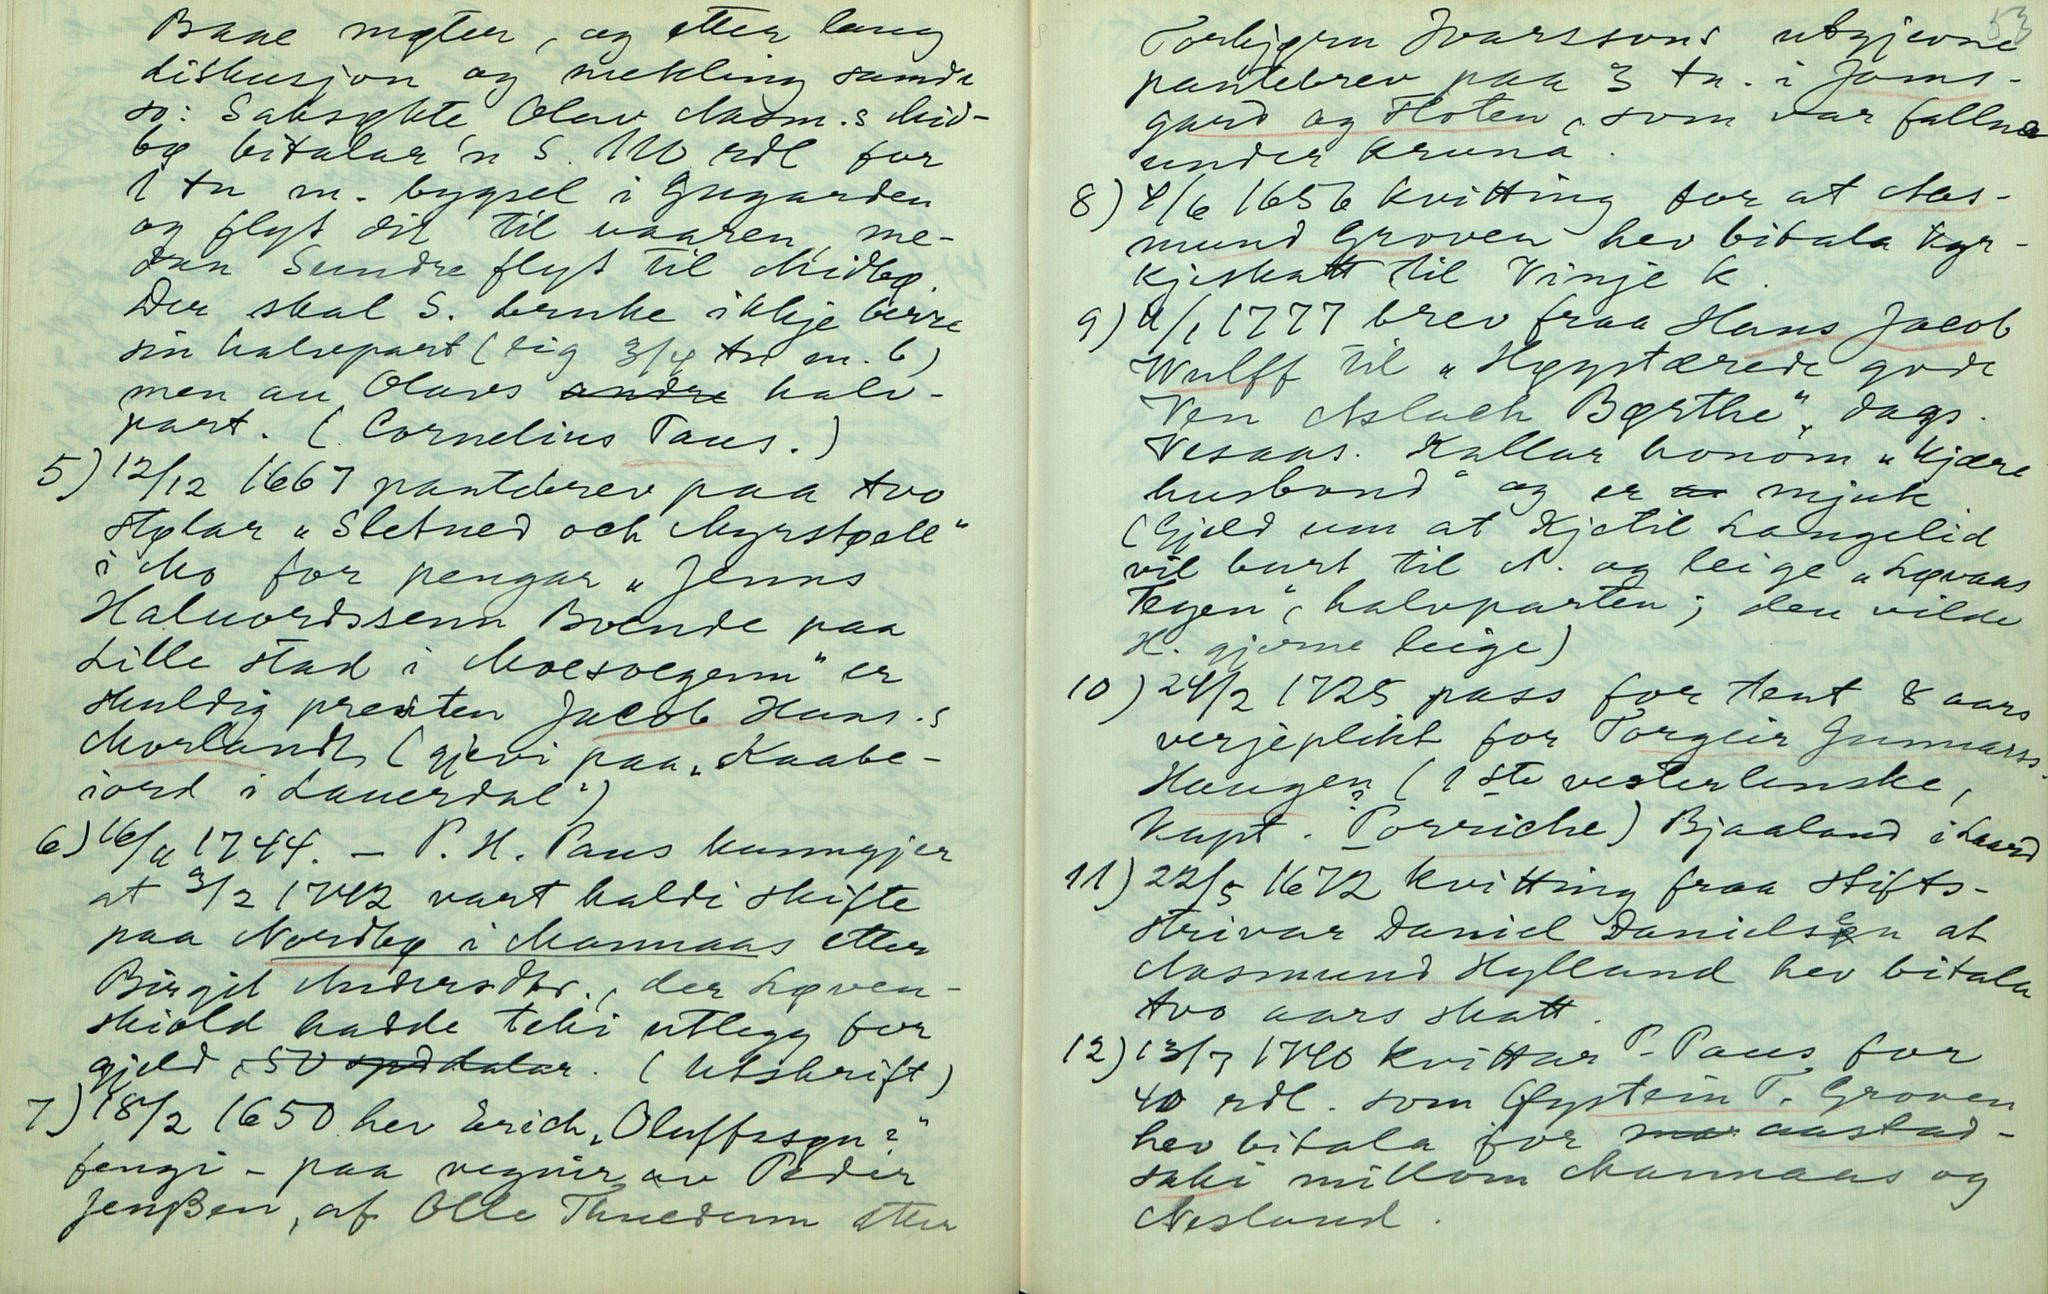 Baae møter, og etter lang
diskusjon og mekling samdi
so: Saksøkte Olav Aasm.s Mid-
bø bitalar 'n S. 110 rdl for
1 tn m. bygsel i Gugarden
og flyt dit til vaaren, me-
dan Sundre flyt til Midbø.
Der skal S. bruke ikkje berre
sin halvpart (eig 3/4 tn m. b)
men au Olavs andre halv-
part. (Cornelius Paus.)
5) 12/12 1667 pantebrev paa tvo
støtar „Sletned och Myrstøell“
i Mo for pengar „Jenns
Haluordssenn Boende paa
Lille stad i Moesoegenn“ er
skuldig presten Jacob Hans.s
Morlandt (gjevi paa „Kaabe-
iord i Lauerdal“)
6) 16/11 1744. – P. H. Paus kunngjer
at 3/2 1742 vart haldi skifte
paa Nordbø i Mannaas etter
Birgit Andersdtr., der Løven-
skiold hadde teki utlegg for
gjeld, 50 spd dalar. (Utskrift)
7) 18/2 1650 hev Erich „Oluffssøn?“
fengi – paa vegnir av Peder
Jenßen, af Olle Thuedenn etter
53
Torbjørn Ivarssons utgjevne
pantebrev paa 3 tn. i Jams-
gard og Floten, som var fallne
under kruna.
8) 4/6 1656 kvitting for at Aas-
mund Groven hev bitala kyr-
kjeskatt til Vinje k.
9) 4/1 1777 brev fraa Hans Jacob
Wulff til „Høystærede gode
Ven Aslach Børthe“, dags.
Vesaas. Kallar honom „kjære
husbond“ og er mjuk
(Gjeld um at Kjetil Langelid
vil burt til N. og leige „Løvaas
Tegen“, halvparten; den vilde
H. gjerne leige)
10) 24/2 1725 pass for tent 8 aars
verjeplikt for Torgeir Gunnarss.
Haugen (1ste vesterlenske,
Kapt. Porriche) Bjaaland i Laard
11) 22/5 1672 kvitting fraa stifts-
skrivar Daniel Danielsen at
Aasmund Hylland hev bitala
tvo aars skatt.
12) 13/7 1740 kvittar P. Paus for
40 rdl. som Øystein T. Groven
hev bitala for aastad-
saki millom Mannaas og
Nesland.